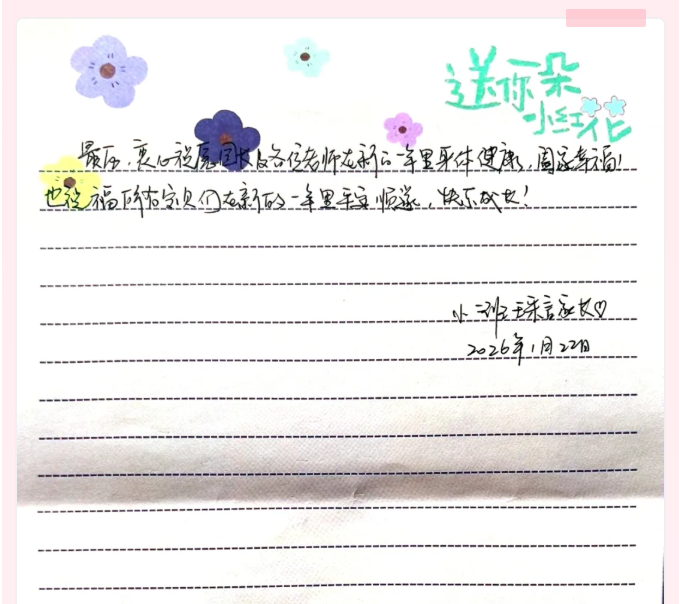 送你朵
小红花
最后,衷心祝愿园长及各位老师在新的一年里身体健康,阖家幸福!
也祝福所有宝贝们在新的一年里平安顺遂,快乐成长!
小二班王采言家长♡
2026年1月22日